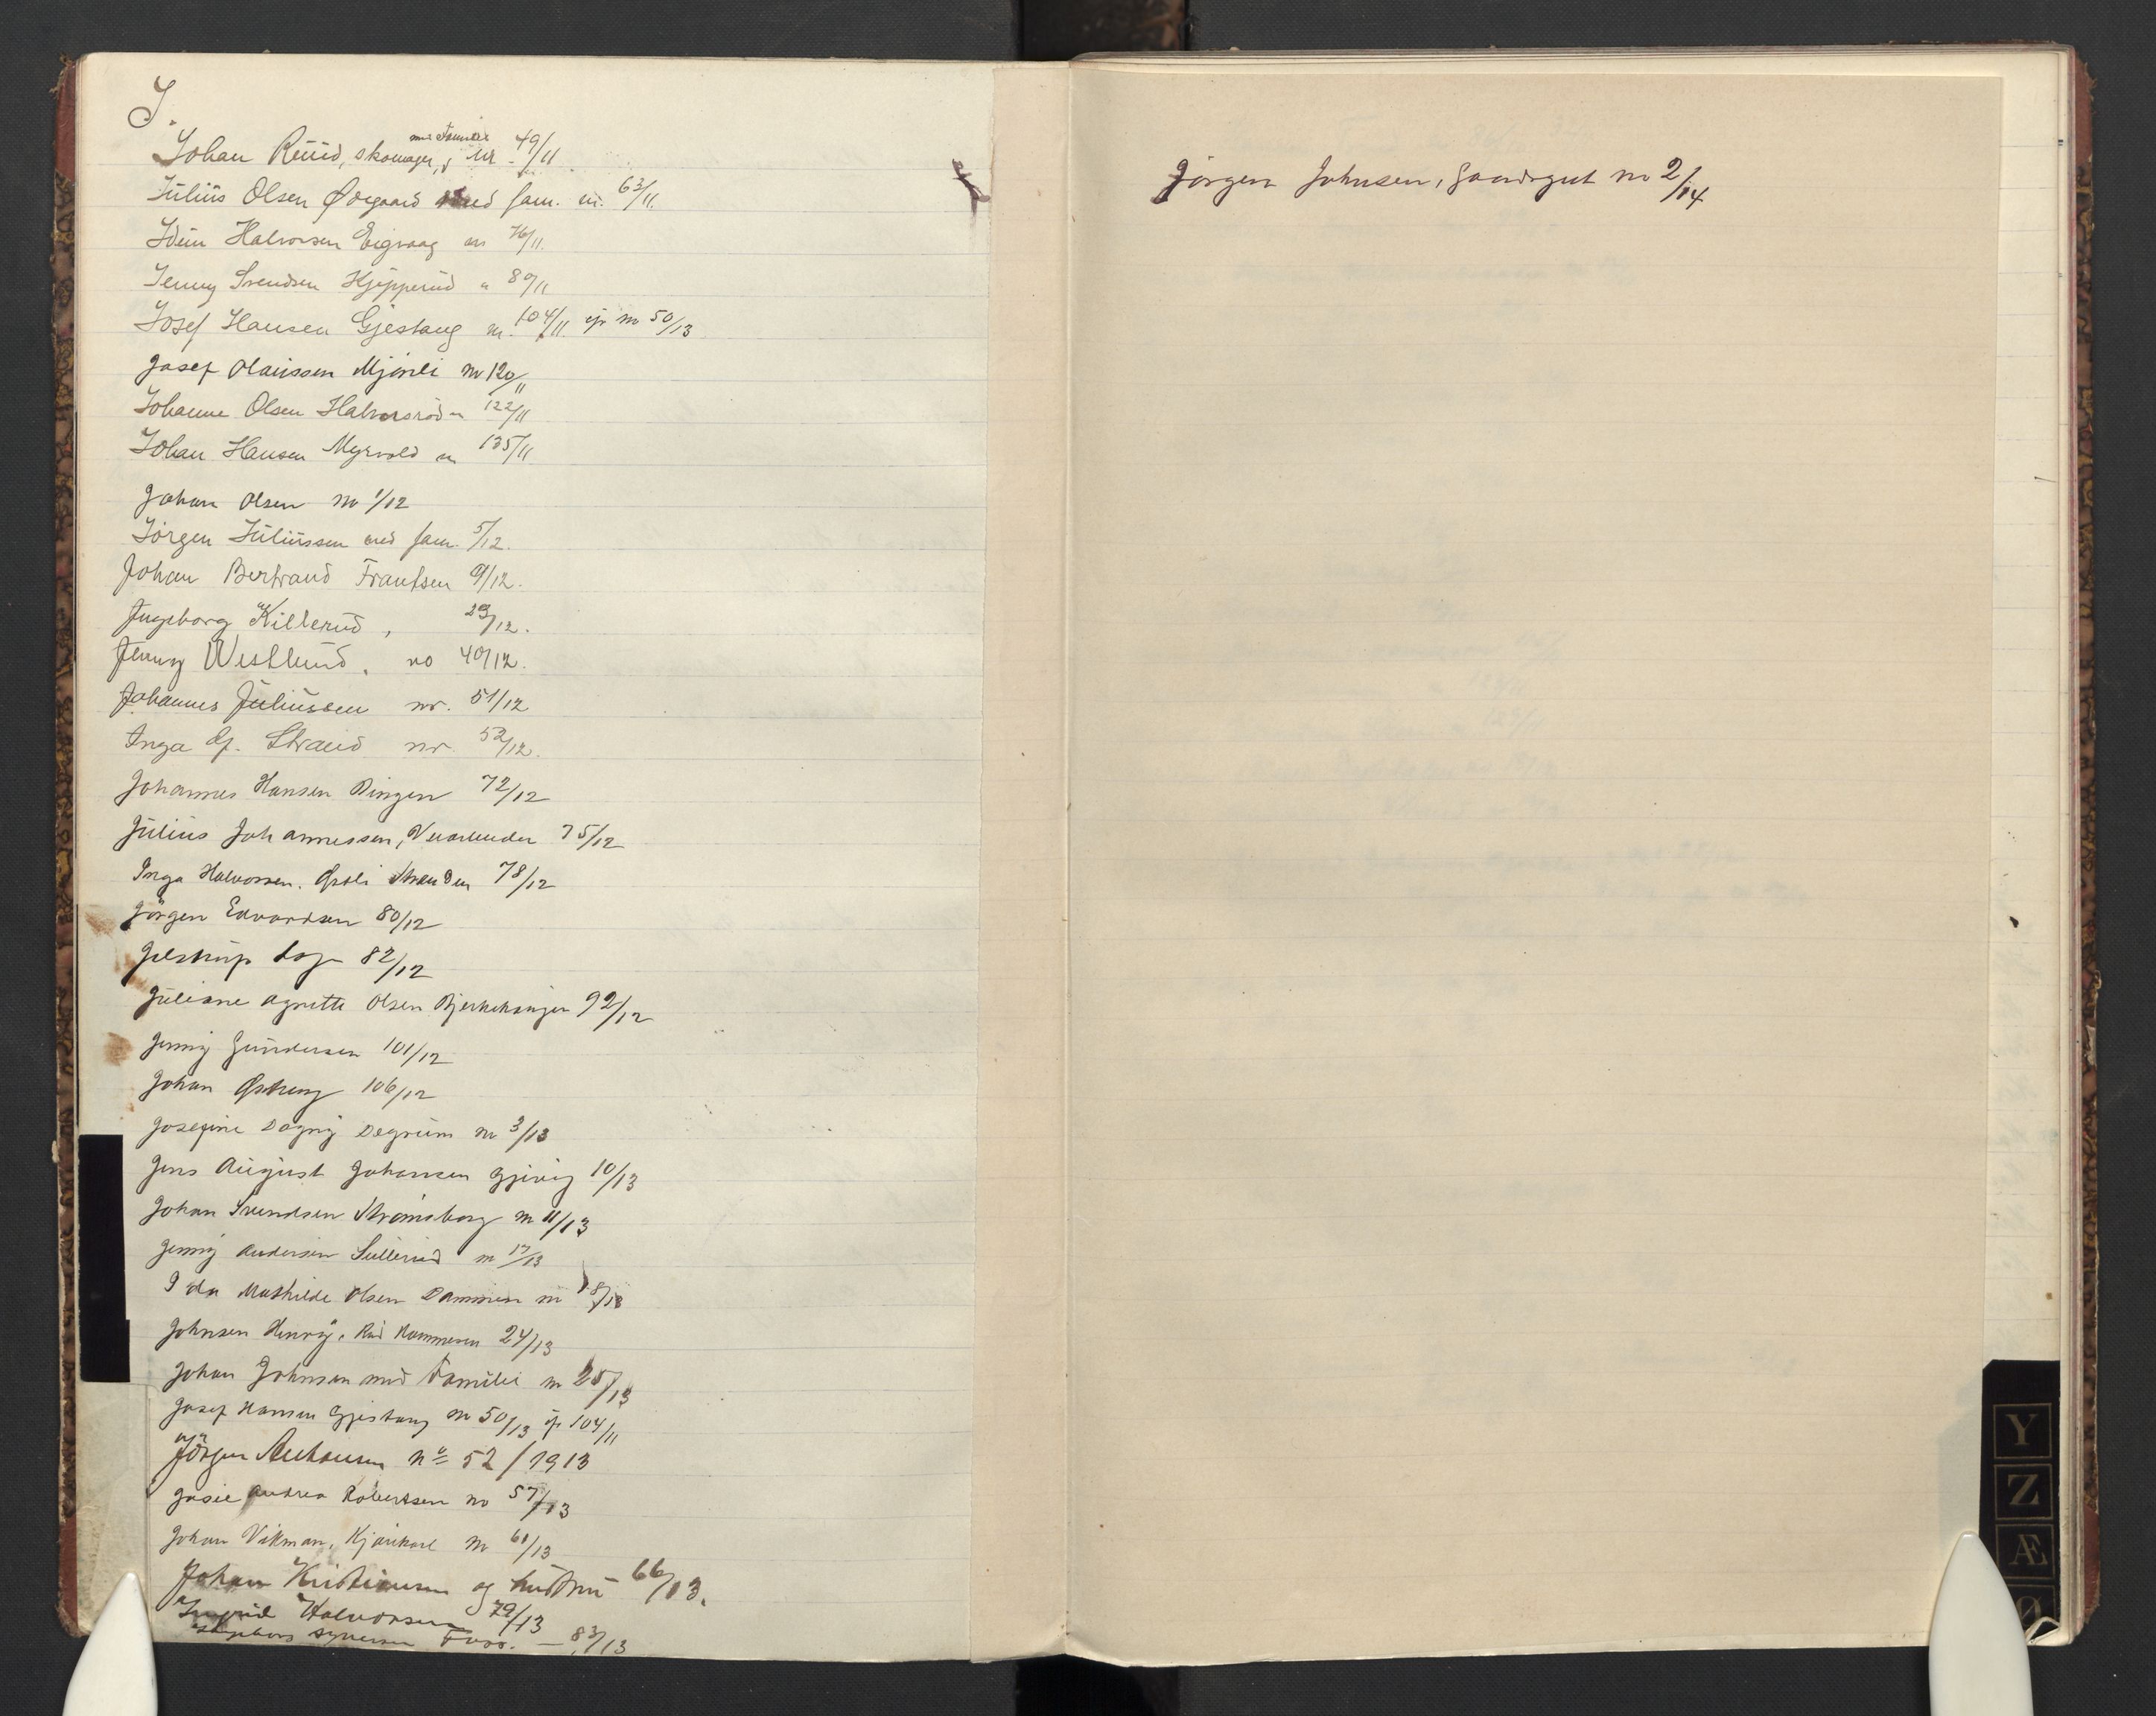 J.
Johan Ruud, skomager, med Familie nr 49/11
Julius Olsen Ørgaard med fam. nr. 63/11
Halvorsen nr 76/11.
Jenny Svendsen Kjepperud " 89/11
Josef Hansen Gjestang nr. 104/11. cfr nr 50/13
Josef Olaussen Mjönli nr 120/11
Johanne Olsen Halvorsröd 122/11
Johan Hansen Myrvold nr 135/11
Johan Olsen nr 1/12
Jörgen Juliussen med fam. 5/12.
Johan Bertrand Frantsen 9/12.
Ingeborg Killerud, 29/12.
Jenny Westlund, no 40/12.
Johannes Juliussen nr. 51/12
Inga Strand nr. 52/12.
Johannes Hansen Ringen 72/12
Julius Johannessen, 75/12
Inga Halvorsen. Østli Stranden 78/12
Jörgen Edvardsen 80/12
Jelstrup 82/12
Juliane Agnette Olsen 92/12
Jenny Gundersen 101/12
Johan Østreng 106/12
Josefine Dagny Degrum nr 3/13
Jens August Johansen Gjövig 10/13
Johan Svendsen Strömsborg nr 11/13
Jenny Andersen Sullerud nr 17/13
Ida Mathilde Olsen Dammen nr 18/13
Johnsen Henry, 24/13
Johan Johnsen med Familie nr 25/13
Josef Hansen Gjestang nr 50/13 cfr 104/11
Jörgen No 52/1913
Josie Andrea Robertsen no 57/13
Johan Vikman, Kjörekarl nr 61/13
Johan Kristiansen og hustru 66/13.
Ingrid Halvorsen 79/13
Ingeborg Syversen Foss. — 83/13
Jörgen Johnsen, Gaardsgut nr 2/14
Y
Z
Æ
Ø